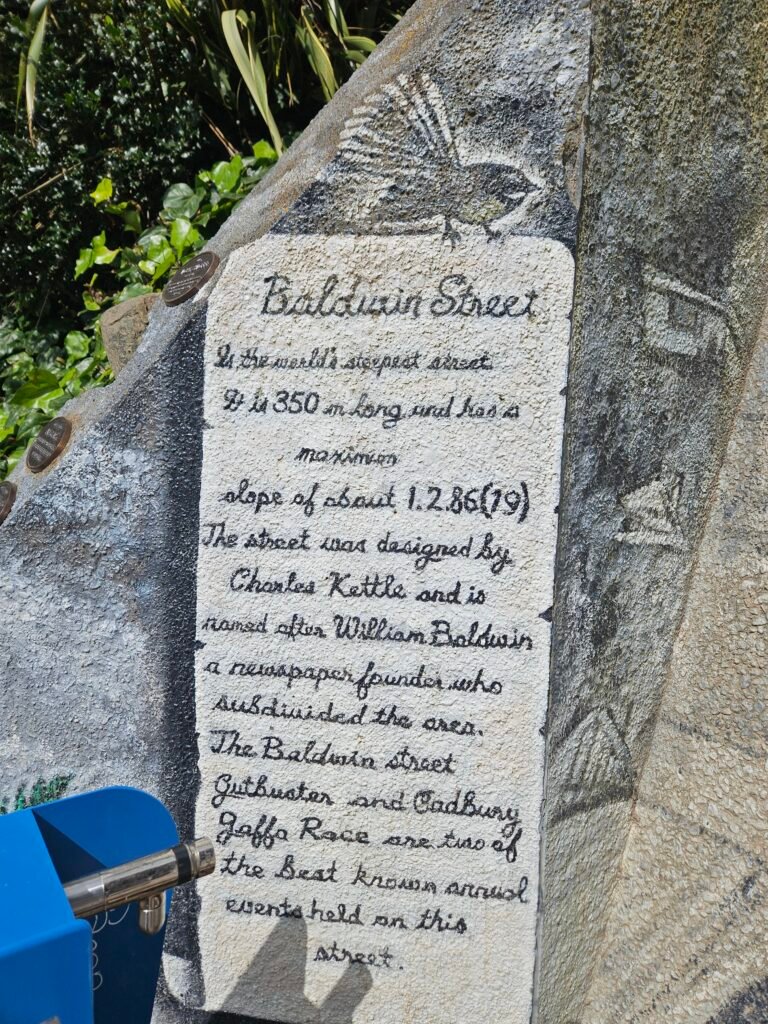 Baldwin Street
Is the world's steepest street.
It is 350 m long and has a
maximum
slope of about 1.2.86(19)
The street was designed by
Charles Kettle and is
named after William Baldwin
a newspaper founder who
subdivided the area.
The Baldwin street
Gutbuster and Cadbury
Jaffa Race are two of
the best known annual
events held on this
street.